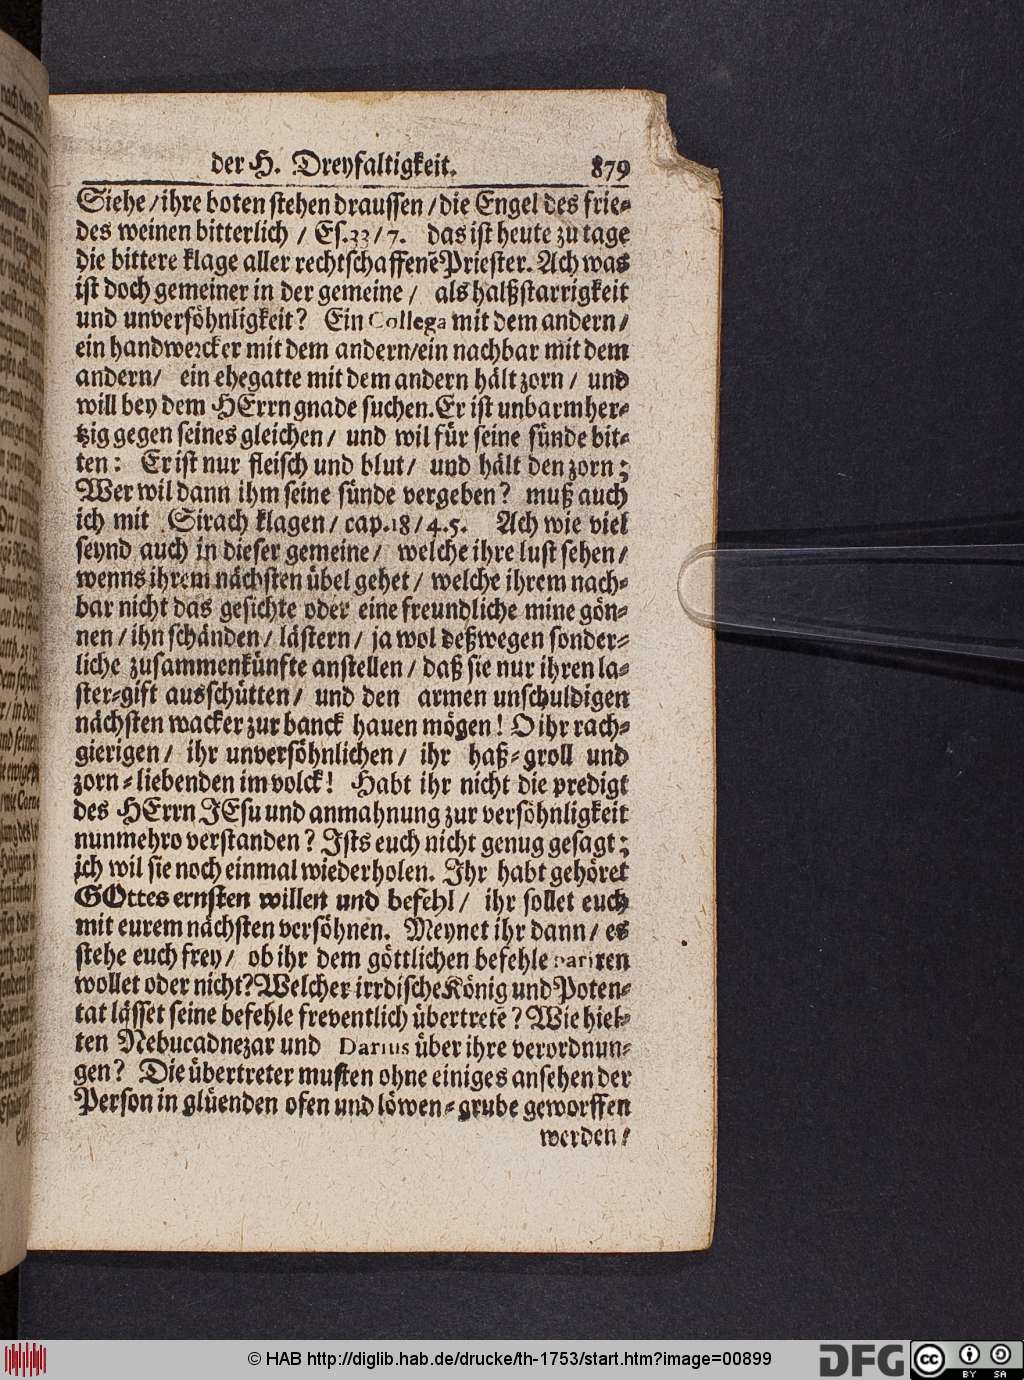 der H. Dreyfaltigkeit. 879
Siehe / ihre boten stehen draussen / die Engel des frie-
des weinen bitterlich / Es. 33 / 7. das ist heute zu tage
die bittere klage aller rechtschaffenē Priester. Ach was
ist doch gemeiner in der gemeine / als halßstarrigkeit
und unversöhnligkeit? Ein Collega mit dem andern /
ein handwercker mit dem andern / ein nachbar mit dem
andern / ein ehegatte mit dem andern hält zorn / und
will bey dem HErrn gnade suchen. Er ist unbarmher-
tzig gegen seines gleichen / und wil für seine sünde bit-
ten: Er ist nur fleisch und blut / und hält den zorn;
Wer wil dann ihm seine sünde vergeben? muß auch
ich mit Sirach klagen / cap. 18 / 4. 5. Ach wie viel
seynd auch in dieser gemeine / welche ihre lust sehen /
wenns ihrem nächsten übel gehet / welche ihrem nach-
bar nicht das gesichte oder eine freundliche mine gön-
nen / ihn schänden / lästern / ja wol deßwegen sonder-
liche zusammenkünfte anstellen / daß sie nur ihren la-
ster-gift ausschütten / und den armen unschuldigen
nächsten wacker zur banck hauen mögen! O ihr rach-
gierigen / ihr unversöhnlichen / ihr haß-groll und
zorn-liebenden im volck! Habt ihr nicht die predigt
des HErrn JEsu und anmahnung zur versöhnligkeit
nunmehro verstanden? Ists euch nicht genug gesagt;
ich wil sie noch einmal wiederholen. Ihr habt gehöret
GOttes ernsten willen und befehl / ihr sollet euch
mit eurem nächsten versöhnen. Meynet ihr dann / es
stehe euch frey / ob ihr dem göttlichen befehle pariren
wollet oder nicht? Welcher irrdische König und Poten-
tat lässet seine befehle freventlich übertretē? Wie hiel-
ten Nebucadnezar und Darius über ihre verordnun-
gen? Die übertreter musten ohne einiges ansehen der
Person in glüenden ofen und löwen-grube geworffen
werden /
© HAB http://diglib.hab.de/drucke/th-1753/start.htm?image=00899
DFG
cc BY SA